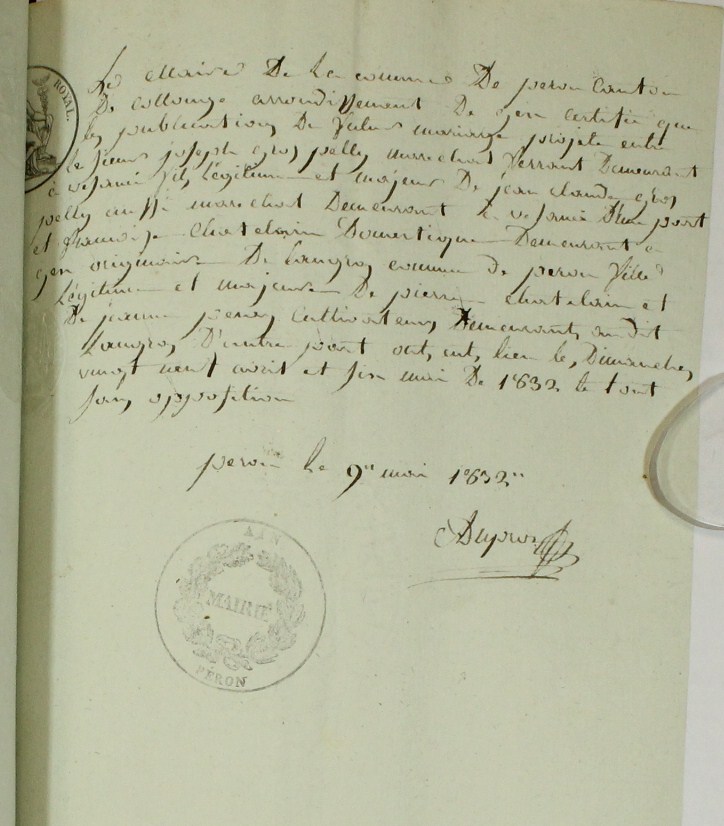 ROYAL.
Le Maire De La commune De peron Canton
De collonge arrondissement De gex certifie que
les publications Du futur mariage projeté entre
Le sieur joseph gros pelly marechal ferrant Demeurant
à fils Légitime et majeur De jean claude gros
pelly aussi marechal Demeurant à D'une part
et françoise Chatelain Domestique Demeurant à
gex originaire De Longeray commune de peron fille
Légitime et majeure De pierre chatelain et
De jeanne Cultivateurs Demeurant au dit
Longeray D'autre part ont eut lieu les Dimanches
vingt neuf avril et six mai De 1832 le tout
sans opposition
peron Le 9 mai 1832
AIN
MAIRIE
PÉRON